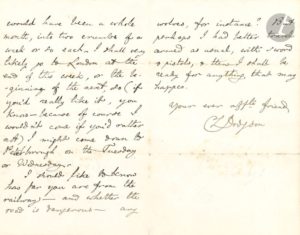 would have been a whole
month, into two enemies of a
week or so each. I shall very
likely go to London at the
end of this week, or the be-
ginning of the next, do (if
you'd really like it, you
know — because of course I
wouldn't come if you'd rather
not) I might come down to
Peterborough on the Tuesday
or Wednesday.
I should like to know
how far you are from the
railway — and whether the
road is dangerous — any
wolves, for instance? But
perhaps I had better travel
armed as usual, with sword
& pistols, & then I shall be
ready for anything that may
happen.
Your ever affte friend,
CLDodgson